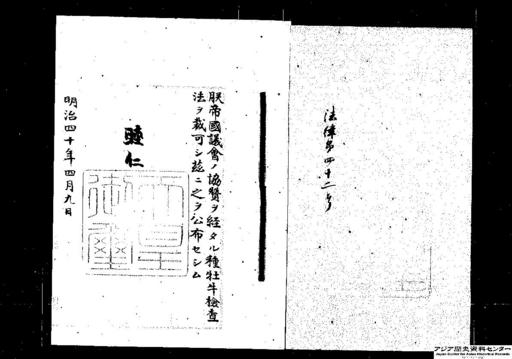 法律第四十二号
朕帝國議會ノ協賛ヲ経タル種牡牛檢査
法ヲ裁可シ茲ニ之ヲ公布セシム
睦仁
天皇御璽
明治四十年四月九日
アジア歴史資料センター
Japan Center for Asian Historical Records